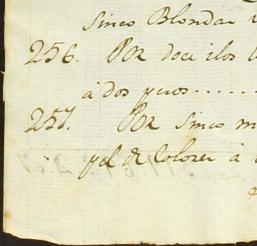 Sinco Blondas
256. Por doce ilos
á dos pesos......
257. Por Sinco
pel de Colores á